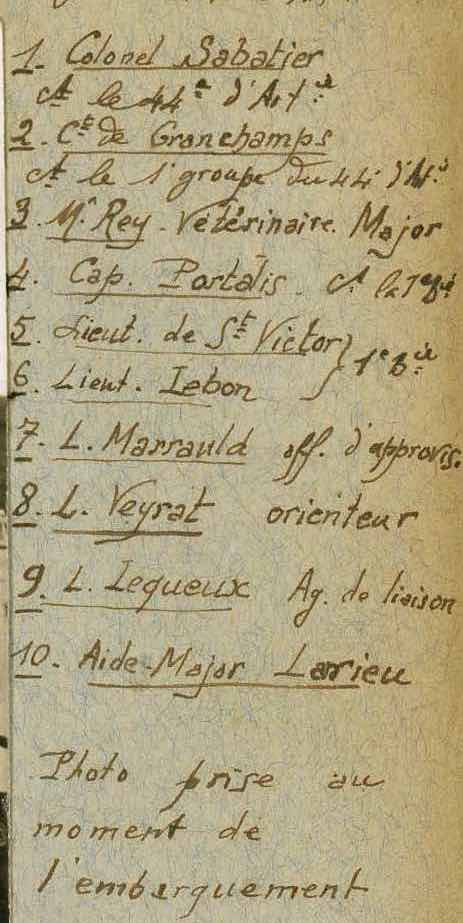 1. Colonel Sabatier
ct le 44e d'Art ie
2. Ct de Granchamps
ct le 1r groupe du 44e d'Art.
3. Mr Rey. Vétérinaire. Major
4. Cap. Portalis. ct la 1e Bie
5. Lieut. de St Victor } 1e Bie
6. Lieut. Lebon
7. L. Marrauld off. d'approvis.
8. L. Veyrat orienteur
9. L. Lequeux Ag. de liaison
10. Aide-Major Larieu
Photo prise au
moment de
l'embarquement